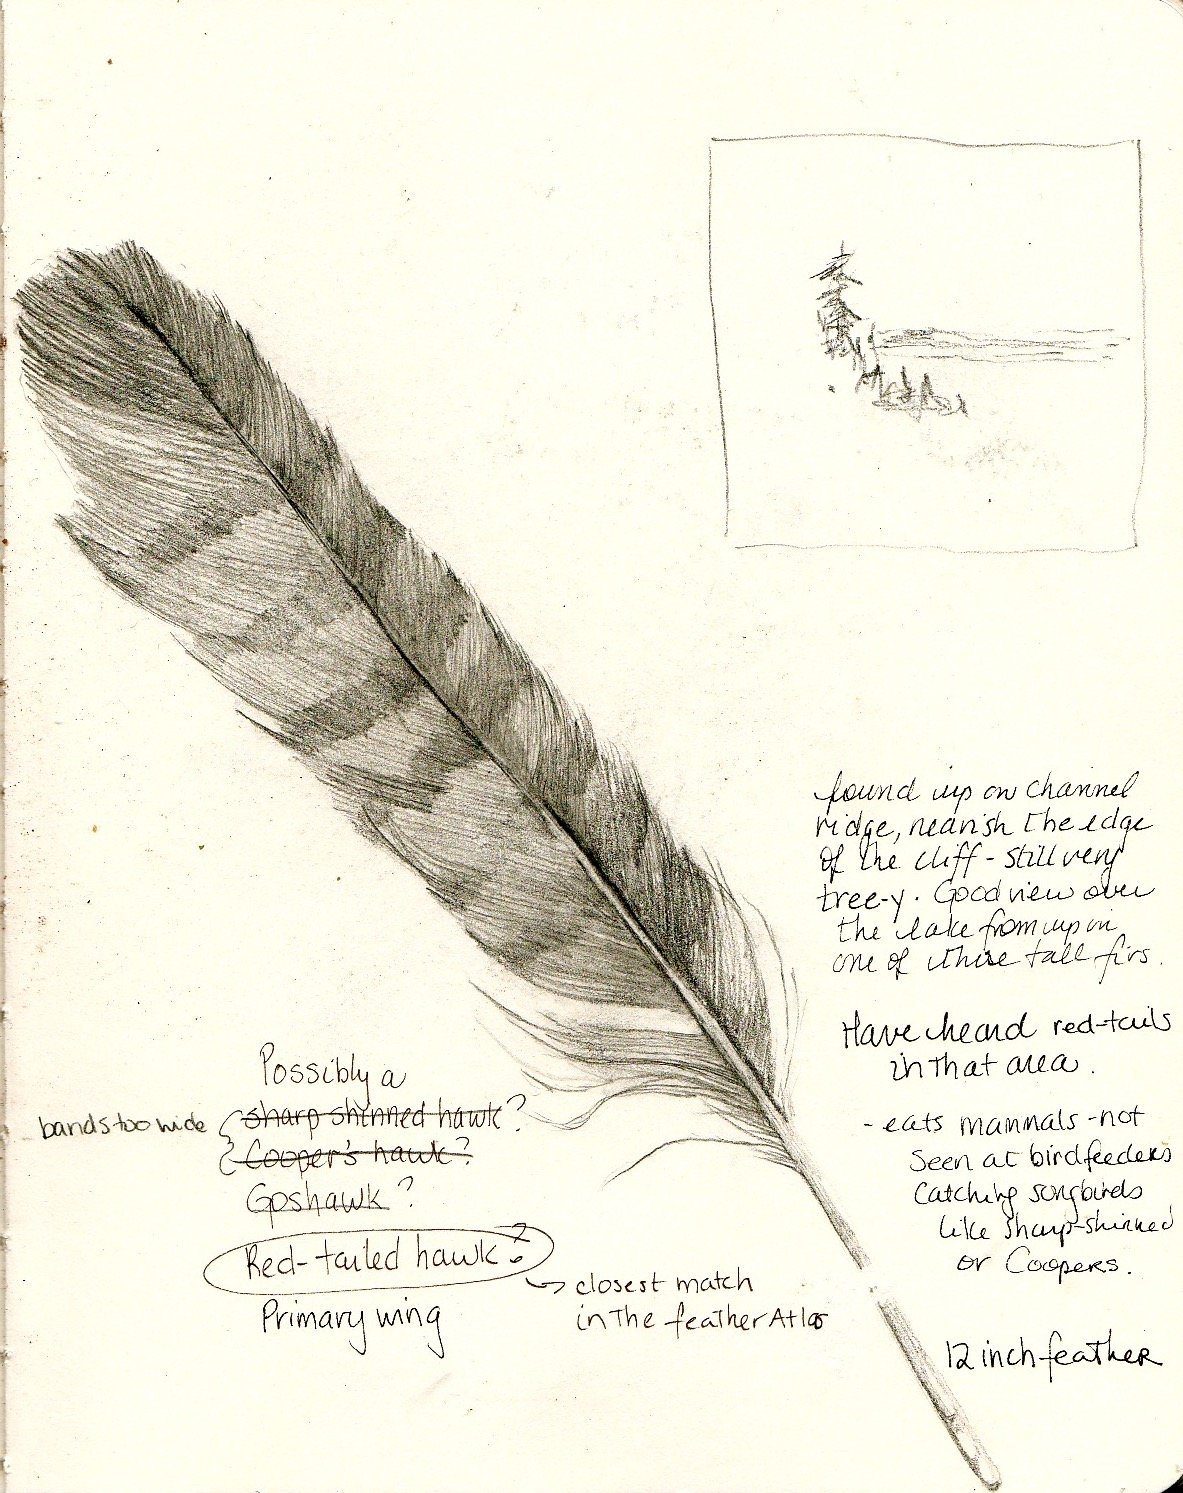 found up on Channel
ridge, nearish the edge
of the cliff - still very
tree-y. Good view over
the lake from up in
one of those tall firs.
Have heard red-tails
in that area.
- eats mammals - not
seen at birdfeeders
catching songbirds
like sharp-shinned
or Coopers.
12 inch feather
Possibly a
bands too wide
sharp shinned hawk?
Cooper's hawk?
Goshawk?
Red-tailed hawk?
Primary wing
closest match
in the feather Atlas